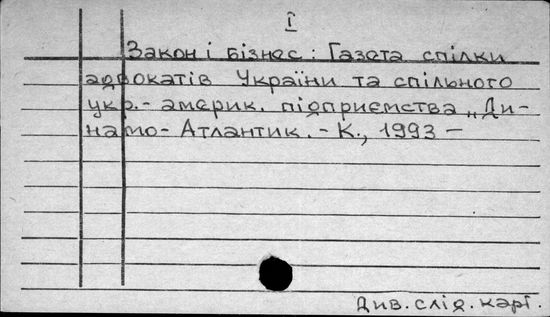 I
Закон і бізнес: Газета спілки
адвокатів України та спільного
укр.- америк. підприємства „Ди-
намо- Атлантик. - К., 1993 –
Див. слід. карт.